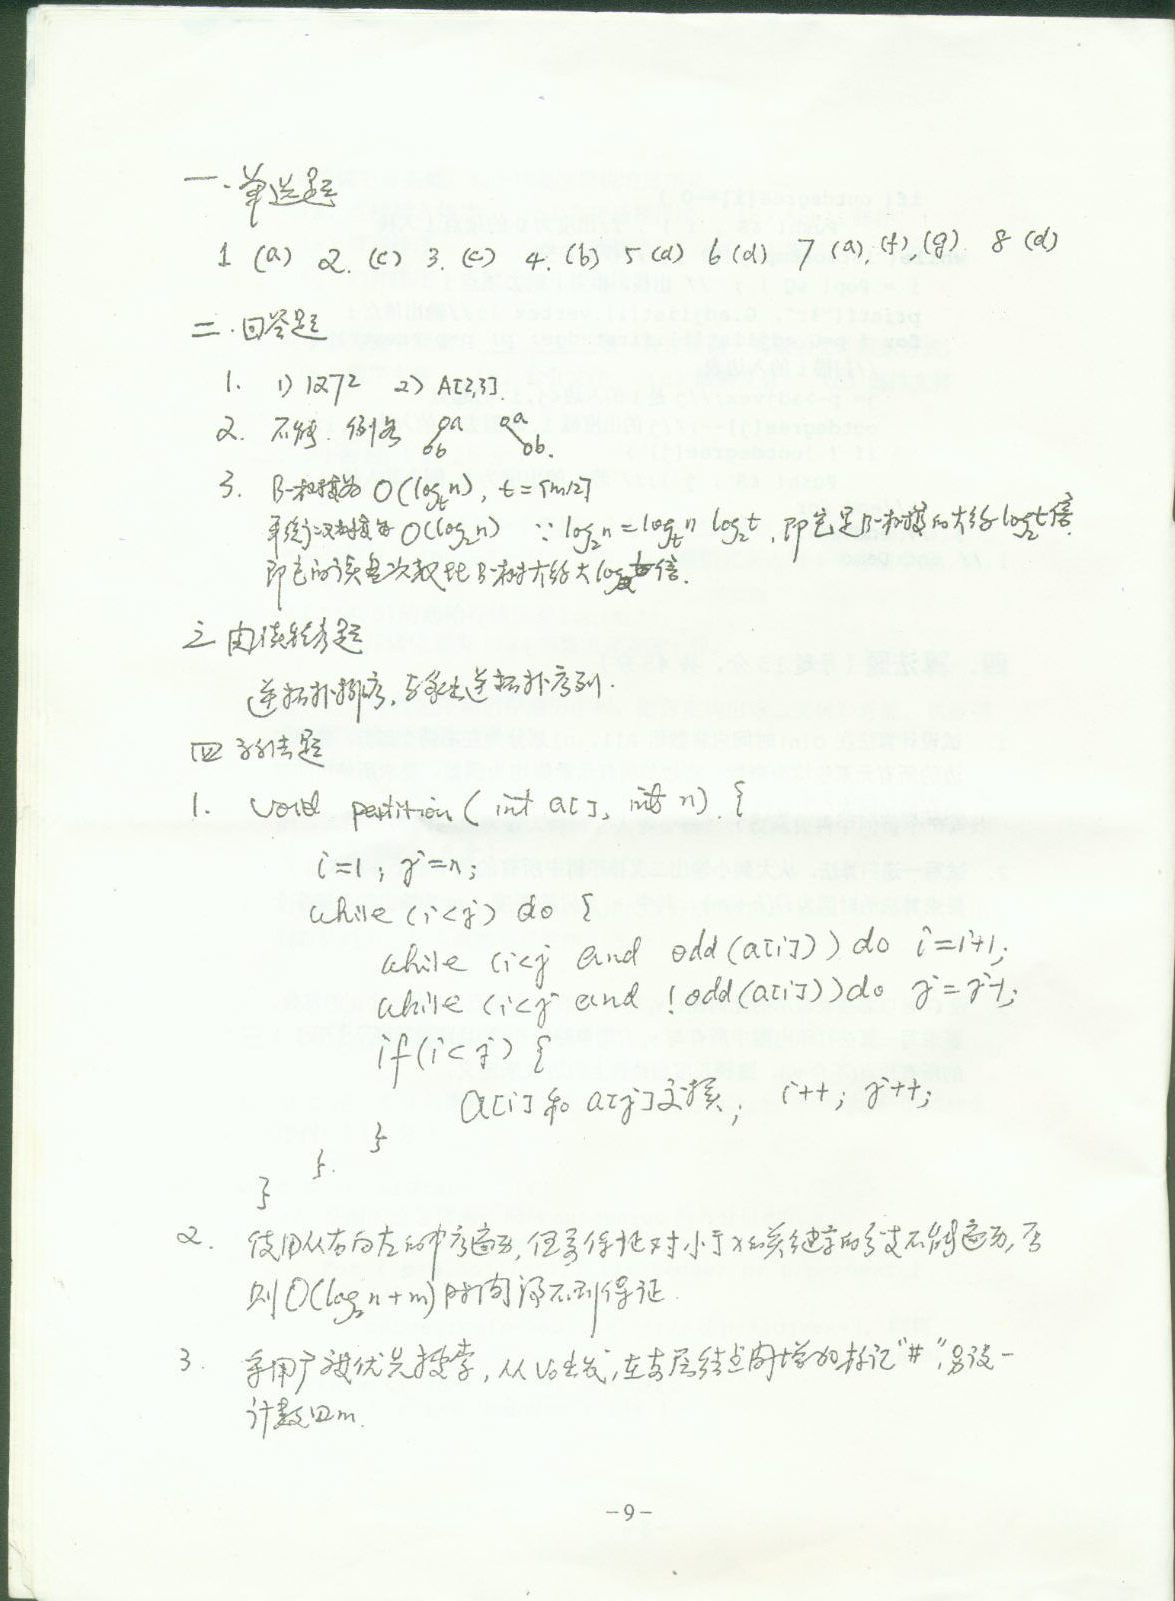 一. 单选题
1 (a) 2. (c) 3. (c) 4. (b) 5 (d) 6 (d) 7 (a), (f), (g). 8 (d)
二. 回答题
1. 1) 1272 2) A[2,3].
2. 不能. 例如 a b a b.
3. B-树搜为 O(log_t n), t=⌈m/2⌉
平衡二叉树搜为 O(log₂n) ∵ log₂n = log_t n log₂t, 即它是B-树搜的大约log₂t倍.
即它的读盘次数比B-树大约大log₂t倍.
三 阅读程序题
逆拓扑排序, 与输出逆拓扑序列.
四 算法题
1. void partition ( int a[], int n) {
i=1; j=n;
while (i<j) do {
while (i<j and odd(a[i])) do i=i+1;
while (i<j and !odd(a[j])) do j=j-1;
if (i<j) {
a[i] 和 a[j] 交换; i++; j++;
}
}.
}
2. 使用从右向左的中序遍历, 但要保证对小于x的关键字的分支不能遍历, 否
则 O(log₂n+m) 时间得不到保证.
3. 采用广度优先搜索, 从v₀出发, 在每层结点间增加标记"#", 另设一
计数m.
-9-